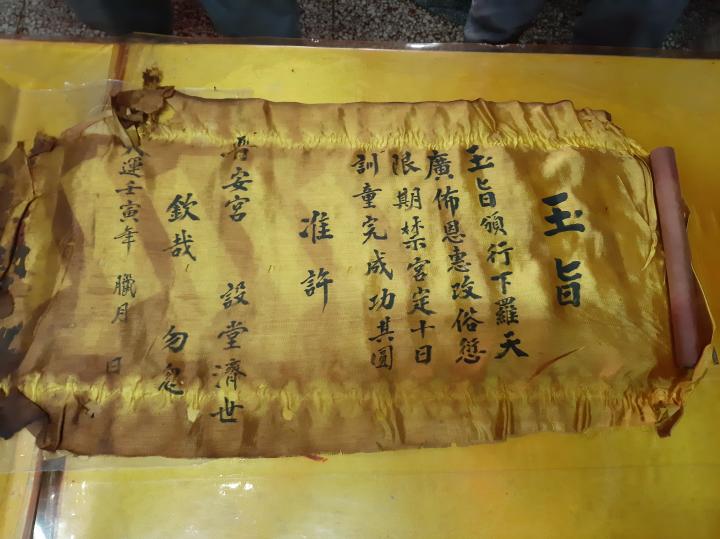 玉旨
玉旨頒行下羅天
廣佈恩惠改俗愆
限期禁宮定十日
訓童完成功其圓
准許
普安宮 設堂濟世
欽哉 勿怠
運壬寅年 臘月 日